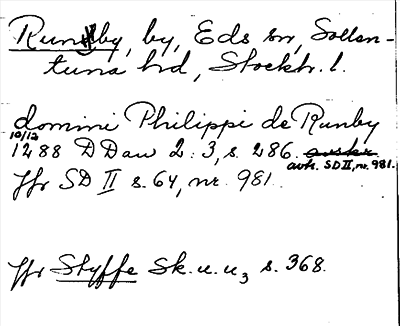 Runby, by, Eds sn, Sollen-
tuna hd, Stockh. l.
domini Philippi de Runby
10/12
1288 DDan 2:3, s. 286. avskr.
avtr. SD II, nr. 981.
Jfr SD II s. 64, nr. 981.
Jfr Styffe Sk. u. u3 s. 368.